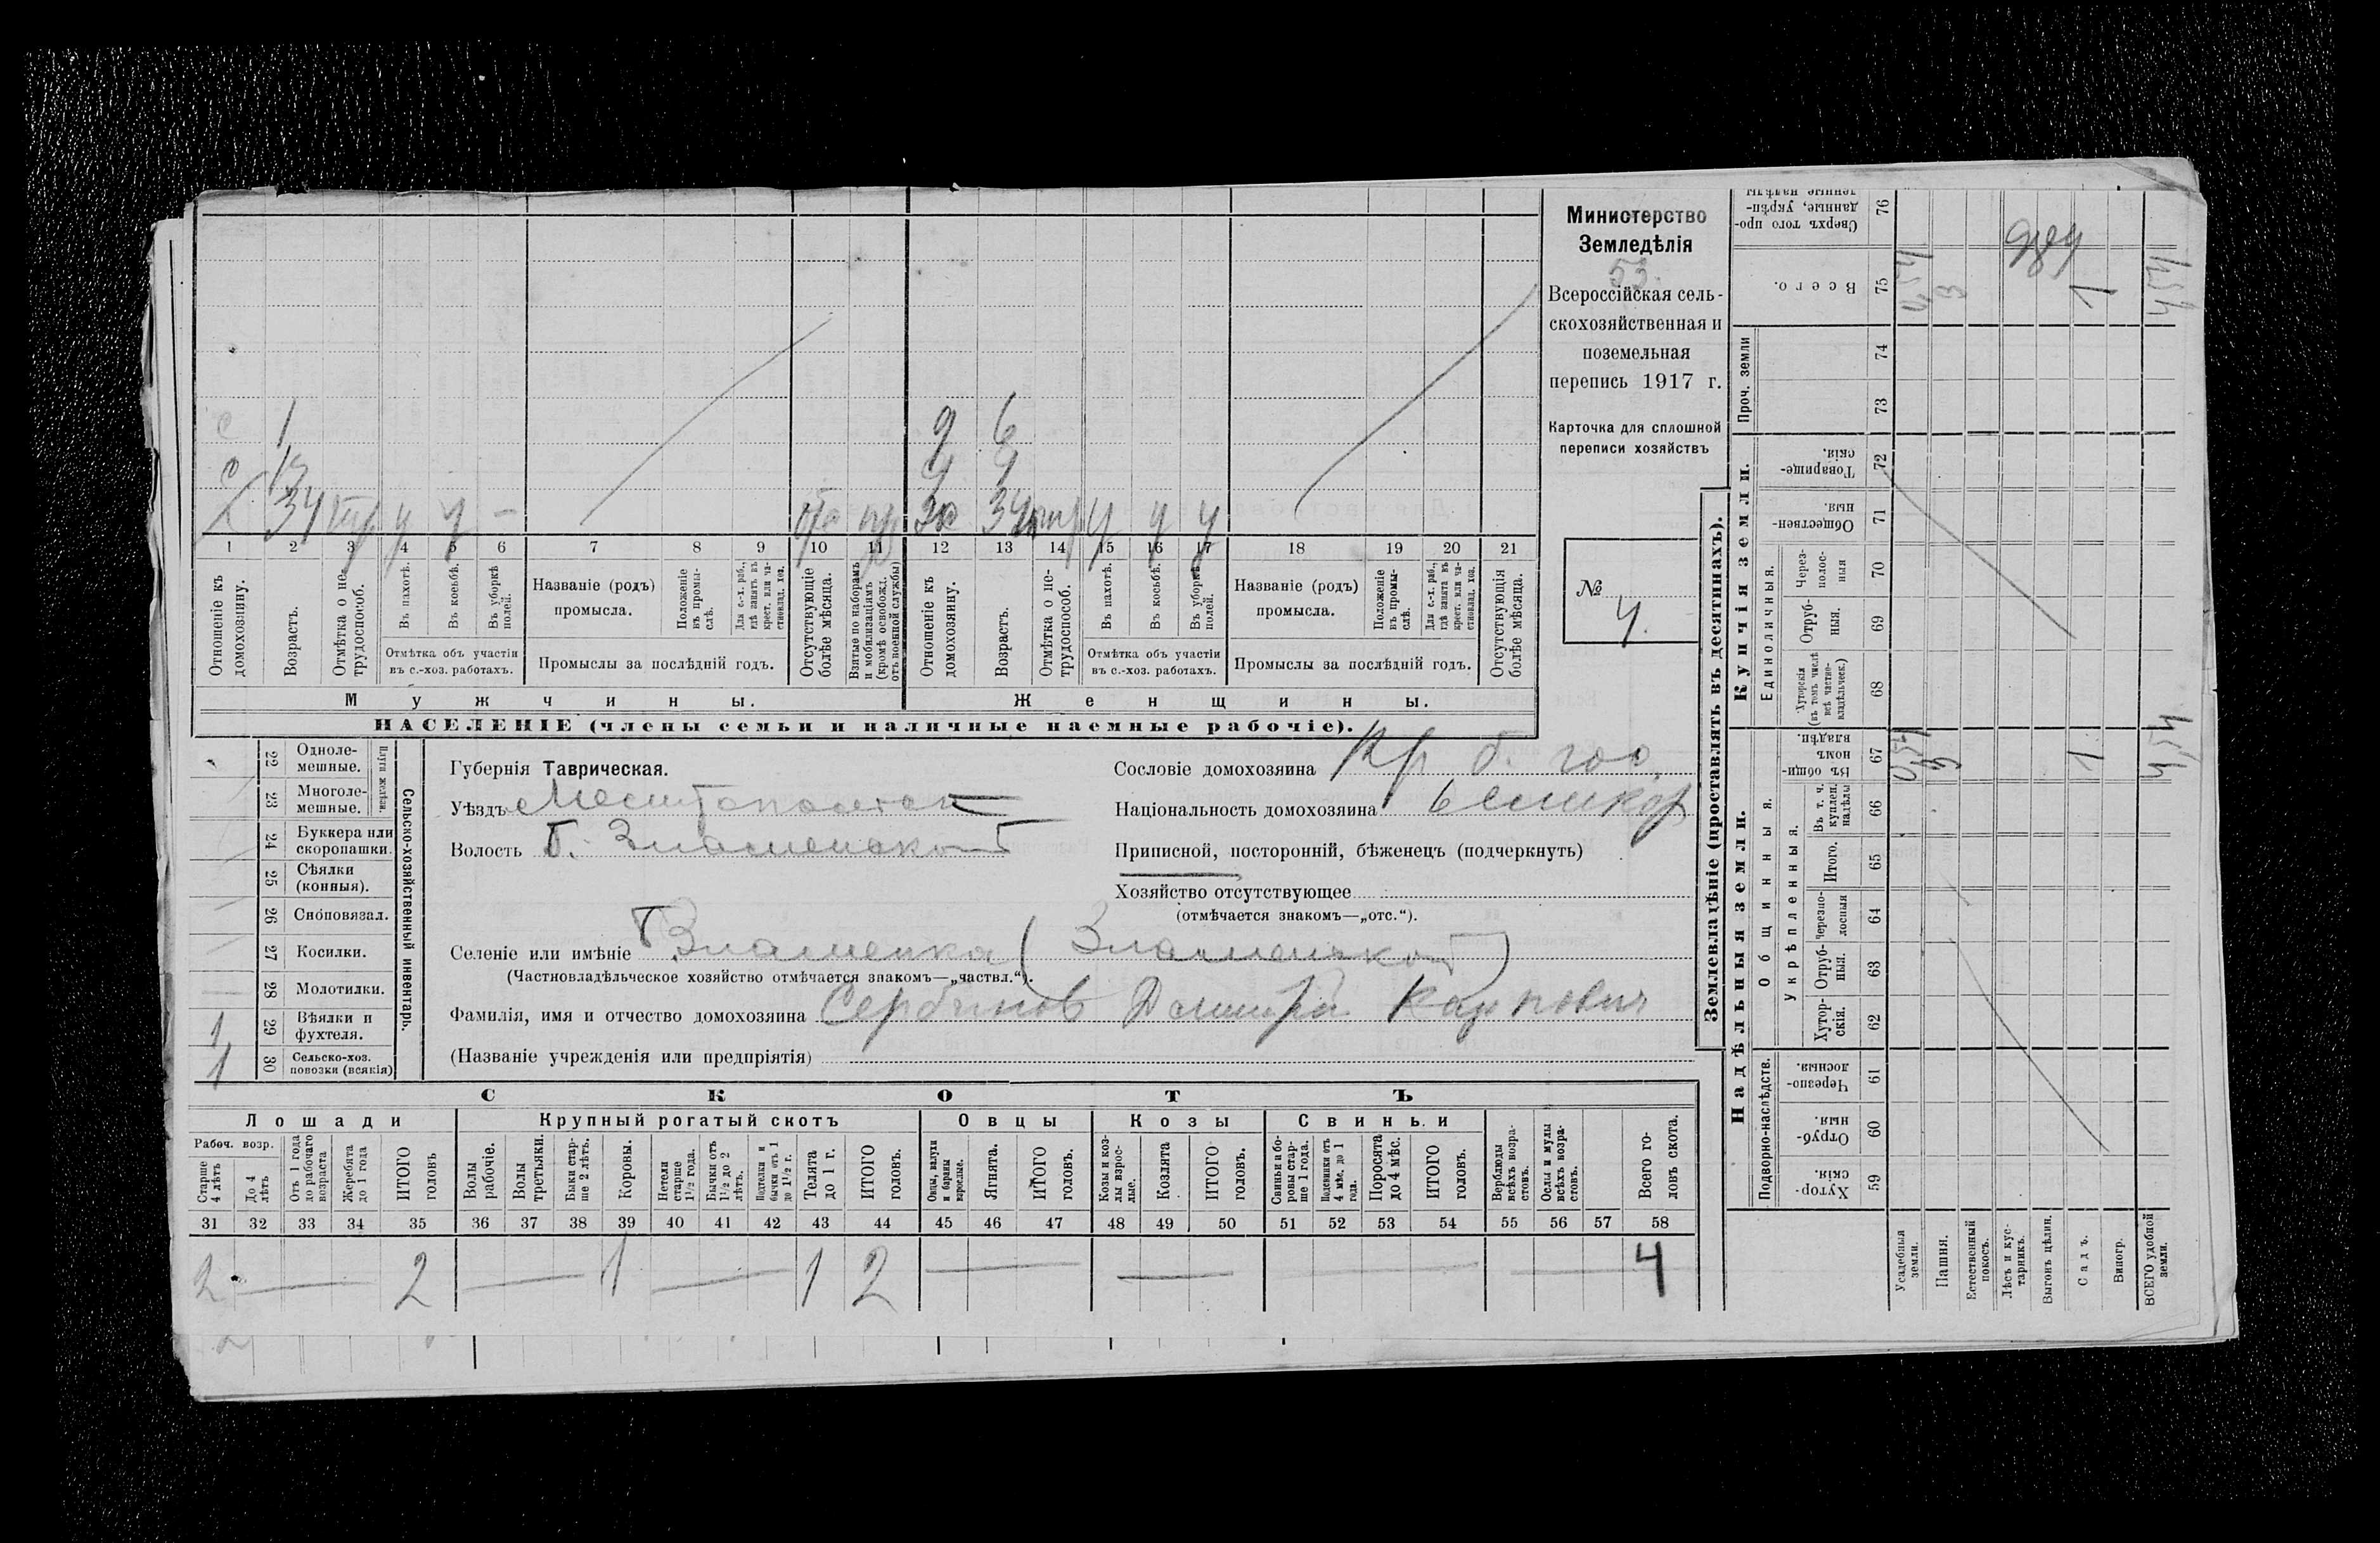 Министерство
Земледѣлія
53.
Всероссійская сель-
скохозяйственная и
поземельная
перепись 1917 г.
Карточка для сплошной
переписи хозяйствъ
№
4.
с 1 9 6
34 34
1 2 3 4 5 6 7 8 9 10 11 12 13 14 15 16 17 18 19 20 21
Отношеніе къ домохозяину.
Возрастъ.
Отмѣтка о не-трудоспособ.
Въ пахотѣ.
Въ косьбѣ.
Въ уборкѣ полей.
Отмѣтка объ участіи
въ с.-хоз. работахъ.
Названіе (родъ)
промысла.
Положеніе въ промы-слѣ.
Для с.-х. раб., гдѣ занятъ въ крест. или ча-стновлад. хоз.
Промыслы за послѣдній годъ.
Отсутствующіе болѣе мѣсяца.
Взятые по наборамъ и мобилизаціямъ (кромѣ освобожд. отъ военной службы)
Отношеніе къ домохозяину.
Возрастъ.
Отмѣтка о не-трудоспособ.
Въ пахотѣ.
Въ косьбѣ.
Въ уборкѣ полей.
Отмѣтка объ участіи
въ с.-хоз. работахъ.
Названіе (родъ)
промысла.
Положеніе въ промы-слѣ.
Для с.-х. раб., гдѣ занята въ крест. или ча-стновлад. хоз.
Промыслы за послѣдній годъ.
Отсутствующія болѣе мѣсяца.
Мужчины.
Женщины.
НАСЕЛЕНІЕ (члены семьи и наличные наемные рабочіе).
Сельско-хозяйственный инвентарь.
Плуги желѣзн.
22 Одноле-мешные.
23 Многоле-мешные.
24 Буккера или скоропашки.
25 Сѣялки (конныя).
26 Сноповязал.
27 Косилки.
28 Молотилки.
1 29 Вѣялки и фухтеля.
1 30 Сельско-хоз. повозки (всякія)
Губернія Таврическая.
Уѣздъ Мелитопольск
Волость Б. Знаменской
Сословіе домохозяина Кр б. гос.
Національность домохозяина великор
Приписной, посторонній, бѣженецъ (подчеркнуть)
Хозяйство отсутствующее
(отмѣчается знакомъ—„отс.“).
Селеніе или имѣніе Б Знаменка (Знаменской)
(Частновладѣльческое хозяйство отмѣчается знакомъ—„частвл.“).
Фамилія, имя и отчество домохозяина Сербинов Дмитрій Карпович
(Названіе учрежденія или предпріятія)
СКОТЪ
Лошади
Крупный рогатый скотъ
Овцы
Козы
Свиньи
Рабоч. возр.
Старше 4 лѣтъ
До 4 лѣтъ
Отъ 1 года до рабочаго возраста
Жеребята до 1 года
ИТОГО головъ
Волы рабочіе.
Волы третьяки.
Быки стар-ше 2 лѣтъ.
Коровы.
Нетели старше 1½ года.
Бычки отъ 1½ до 2 лѣтъ.
Подтелки и бычки отъ 1 до 1½ г.
Телята до 1 г.
ИТОГО головъ.
Овцы, валухи и бараны взрослые.
Ягнята.
ИТОГО головъ.
Козы и коз-лы взрос-лые.
Козлята
ИТОГО головъ.
Свиньи и бо-ровы стар-ше 1 года.
Подсвинки отъ 4 мѣс. до 1 года.
Поросята до 4 мѣс.
ИТОГО головъ.
Верблюды всѣхъ возра-стовъ.
Ослы и мулы всѣхъ возра-стовъ.
Всего го-ловъ скота.
31 32 33 34 35 36 37 38 39 40 41 42 43 44 45 46 47 48 49 50 51 52 53 54 55 56 57 58
2 — 2 — 1 — 1 2 — — — — 4
Землевладѣніе (проставлять въ десятинахъ).
Надѣльныя земли.
Купчія земли.
Проч. земли
Подворно-наслѣдств.
Общинныя.
Укрѣпленныя.
Единоличныя.
59 Хутор-скія.
60 Отруб-ныя.
61 Черезпо-лосныя.
62 Хутор-скія.
63 Отруб-ныя.
64 Черезпо-лосныя
65 Итого.
66 Въ т. ч. куплен. надѣлы
67 Въ общи-номъ владѣн.
68 Хуторскія (въ томъ числѣ всѣ частно-владѣльческ.)
69 Отруб-ныя.
70 Через-полос-ныя
71 Обществен-ныя.
72 Товарище-скія.
73
74
75 Всего.
76 Сверхъ того про-данные, укрѣп-ленные надѣлы
Усадебныя земли.
Пашня.
Естественный покосъ.
Лѣсъ и кус-тарникъ.
Выгонъ цѣлин.
Садъ.
Виногр.
ВСЕГО удобной земли.
0,54 3 1 4,54
0,54 3 1 4,54